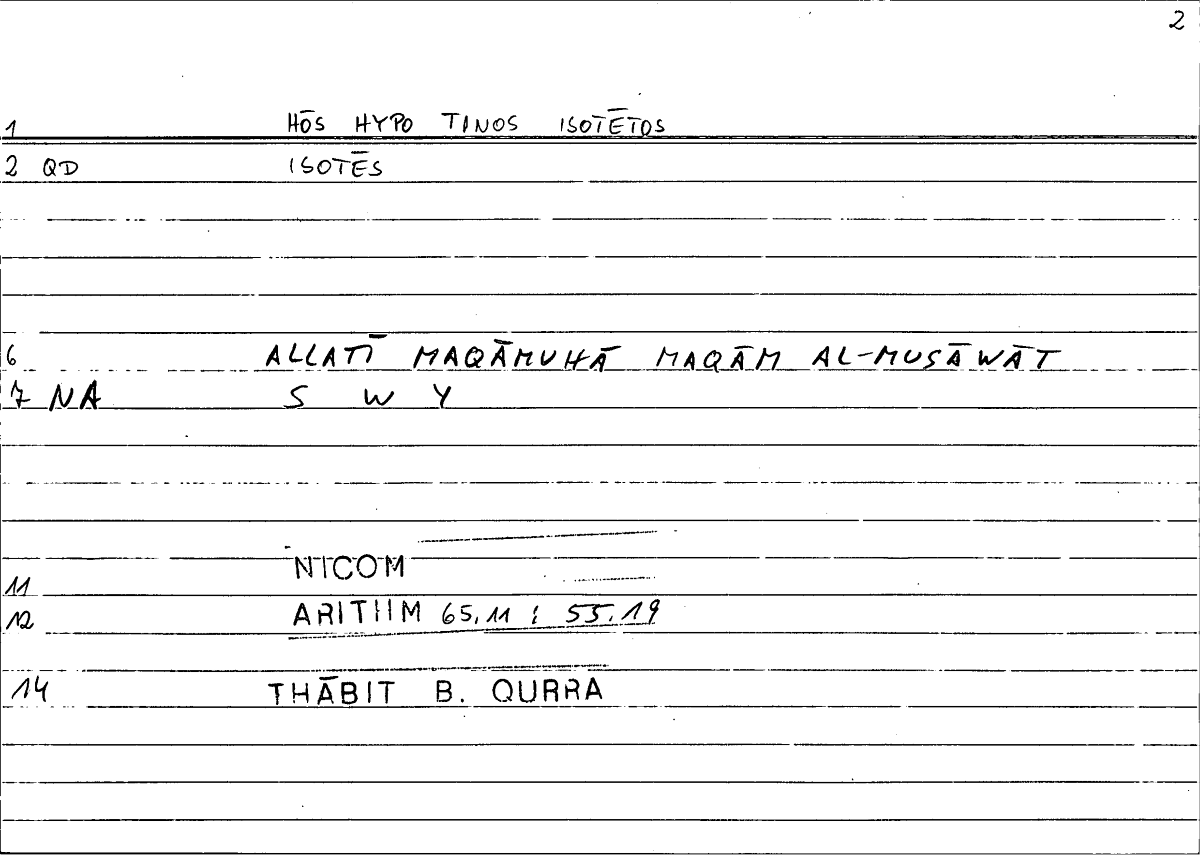 2
1 HŌS HYPO TINOS ISOTĒTOS
2 QD ISOTĒS
6 ALLATĪ MAQĀMUHĀ MAQĀM AL-MUSĀWĀT
7 NA S W Y
11 NICOM
12 ARITHM 65.11 : 55.19
14 THĀBIT B. QURRA